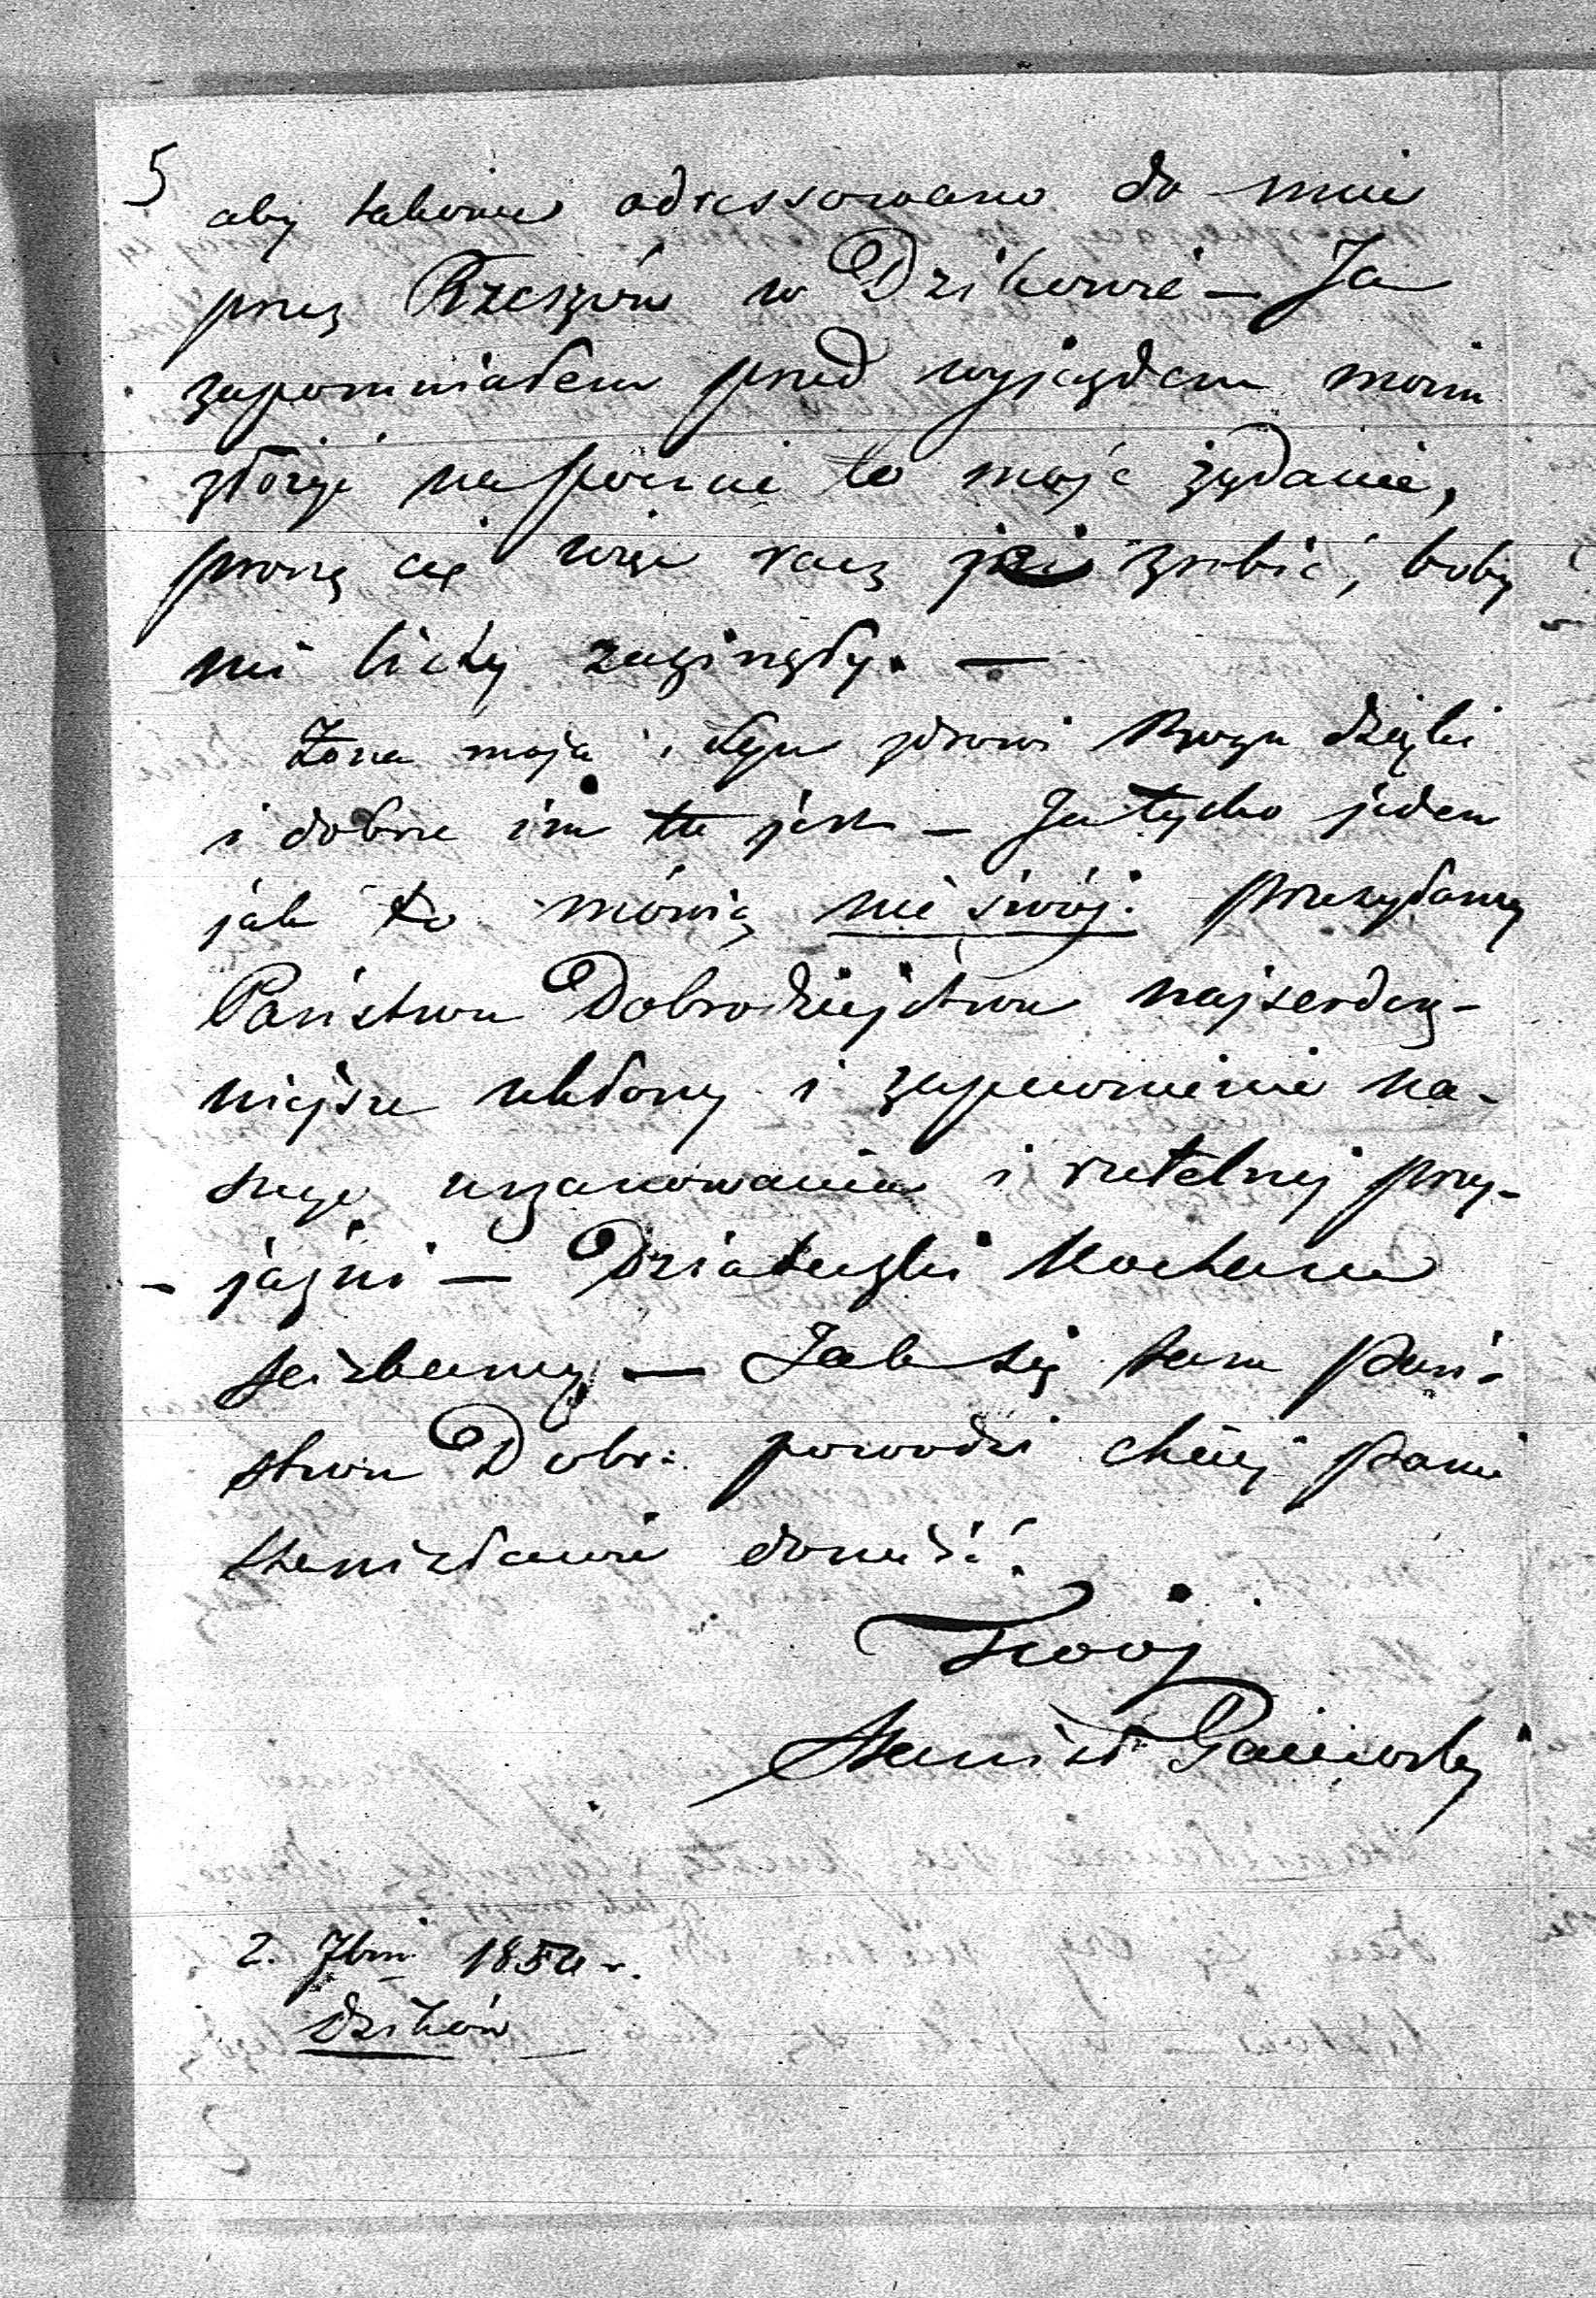 5
aby takowe adressowano do mnie
przez Rzeszów w Dzikowie — Ja
zapomniałem przed wyjazdem moim
złożyć na poczcie to moje żądanie,
proszę cię więc racz je zrobić, boby
mi listy zaginęły. —
Żona moja i syn zdrowi Bogu dzięki
i dobrze im tu jest — Ja tylko jeden
jak to mówią nie swój. Przesyłamy
Państwu Dobrodziejstwu najserdecz-
niejsze ukłony i zapewnienie na-
szego uszanowania i rzetelnej przy-
- jaźni — Dziateczki kochane
ściskamy — Jak się tam Pań-
stwu Dobr: powodzi chciej Panie
Stanisławie donieść.
Twój
Stanisł
2. 7bra 185 r.
Dzików